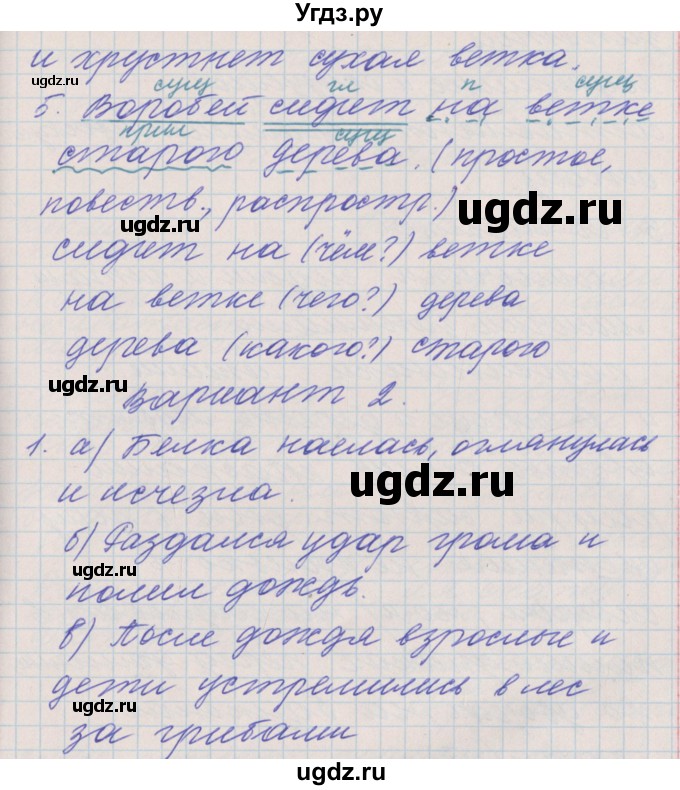 Угдз.ру
и хрустнет сухая ветка.
ugdz.ru
сущ гл п сущ
5. Воробей сидит на ветке
прил сущ
старого дерева. (простое,
повеств., распростр.)
ugdz.ru
ugdz.ru
сидит на (чём?) ветке
на ветке (чего?) дерева
дерева (какого?) старого
ugdz.ru
Вариант 2.
1. а) Белка наелась, оглянулась
ugdz.ru
и исчезла.
б) Раздался удар грома и
ugdz.ru
полил дождь.
в) После дождя взрослые и
дети устремились в лес
ugdz.ru
за грибами
ugdz.ru